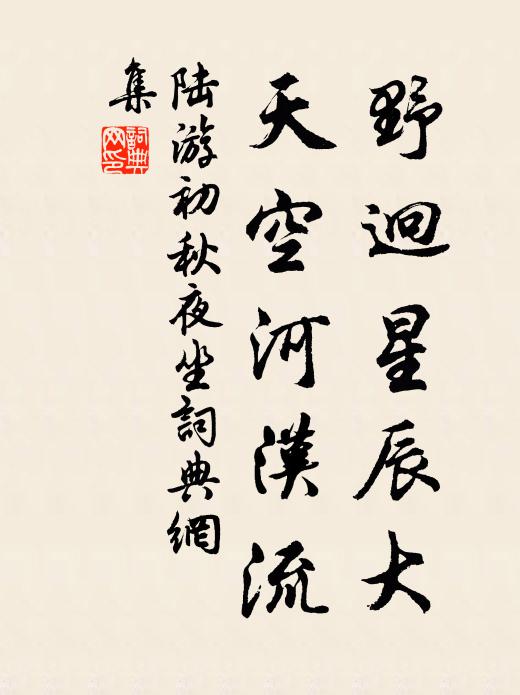 野迥星辰大
天空河漢流
陆游初秋夜坐詞典網
集
詞典
网印